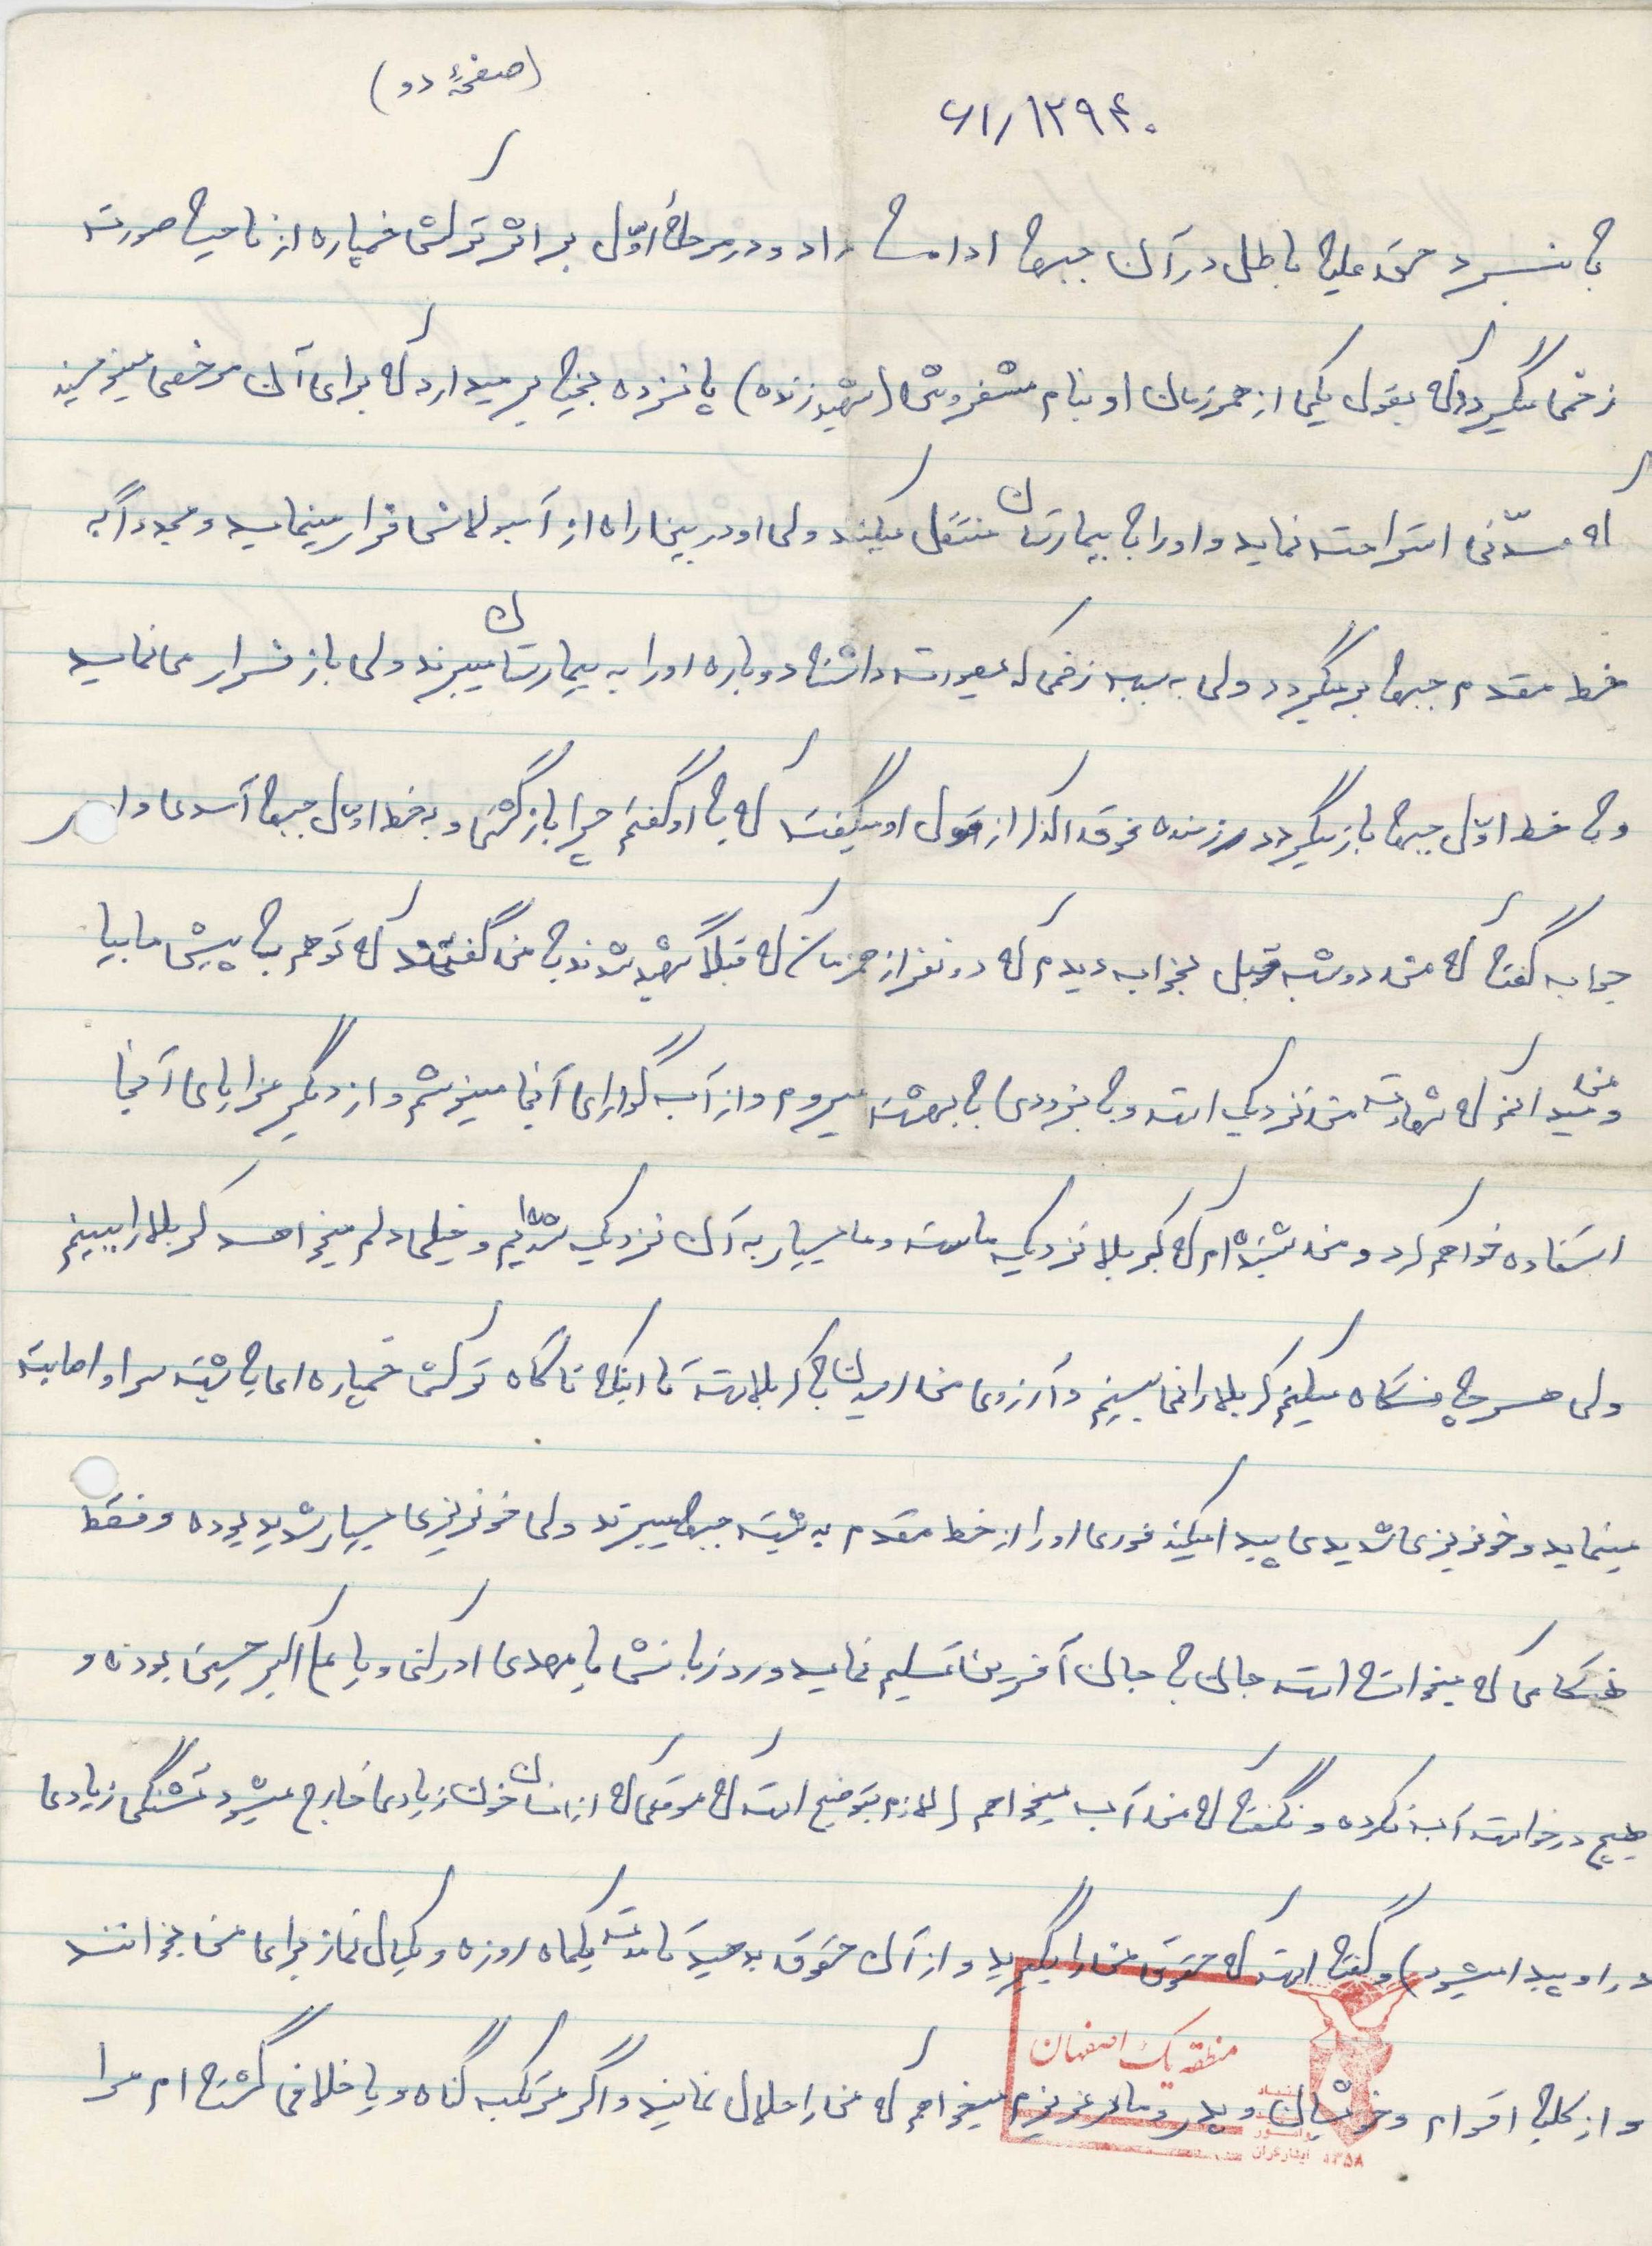 (صفحهٔ دو)
۶۱/۱۲۹۴۰
به نبرد حق علیه باطل در آن جبهه ادامه داد و در مرحلهٔ اوّل بر اثر ترکش خمپاره از ناحیه صورت
زخمی میگردد که بقول یکی از همرزمان او بنام مشفروش (شهید زنده) پانزده بخیه برمیدارد که برای آن مرخصی مینویسند
که مدّتی استراحت نماید و او را به بیمارستان منتقل میکنند ولی او در بین راه از آمبولانس فرار مینماید و مجدداً به
خط مقدم جبهه برمیگردد ولی به سبب زخمی که بصورت داشته دوباره او را به بیمارستان میبرند ولی باز فرار می نماید
و به خط اوّل جبهه بازمیگردد رزمنده فوق الذکر از قول او میگفت که به او گفتم چرا بازگشتی و به خط اوّل جبهه آمدی او در
جواب گفته که من دو شب قبل بخواب دیدم که دو نفر از همرزمان که قبلاً شهید شدند به من گفتند که تو هم به پیش ما بیا
و من میدانم که شهادت من نزدیک است و به بزودی به بهشت میروم و از آب گوارای آنجا مینوشم و از دیگر مزایای آنجا
استفاده خواهم کرد و من شنیده ام که کربلا نزدیک ماست و ما بسیار به آن نزدیک شده ایم و خیلی دلم میخواهد کربلا را ببینم
ولی هر چه نگاه میکنم کربلا را نمی بینم و آرزوی من رسیدن به کربلاست تا اینکه ناگاه ترکش خمپاره ای به پشت سر او اصابت
مینماید و خونریزی شدیدی پیدا میکند فوری او را از خط مقدم به پشت جبهه میبرند ولی خونریزی بسیار شدید بوده و فقط
هنگامی که میخواسته است جان به جان آفرین تسلیم نماید ورد زبانش یا مهدی ادرکنی و یا علی اکبر حسین بوده و
هیچ درخواست آب نکرده و نگفته که من آب میخواهم (لازم بتوضیح است که موقعی که از انسان خون زیادی خارج میشود تشنگی زیادی
در او پیدا میشود) و گفته است که حقوق من را بگیرید و از آن حقوق بدهید تا مدت یکماه روزه و یکسال نماز برای من بخوانند
و از کلیه اقوام و خویشان و پدر و مادر عزیزم میخواهم که من را حلال نمایند و اگر مرتکب گناه و یا خلافی گشته ام مرا
منطقه یک اصفهان
بنیاد
و امور
ایثارگران
۱۳۵۸